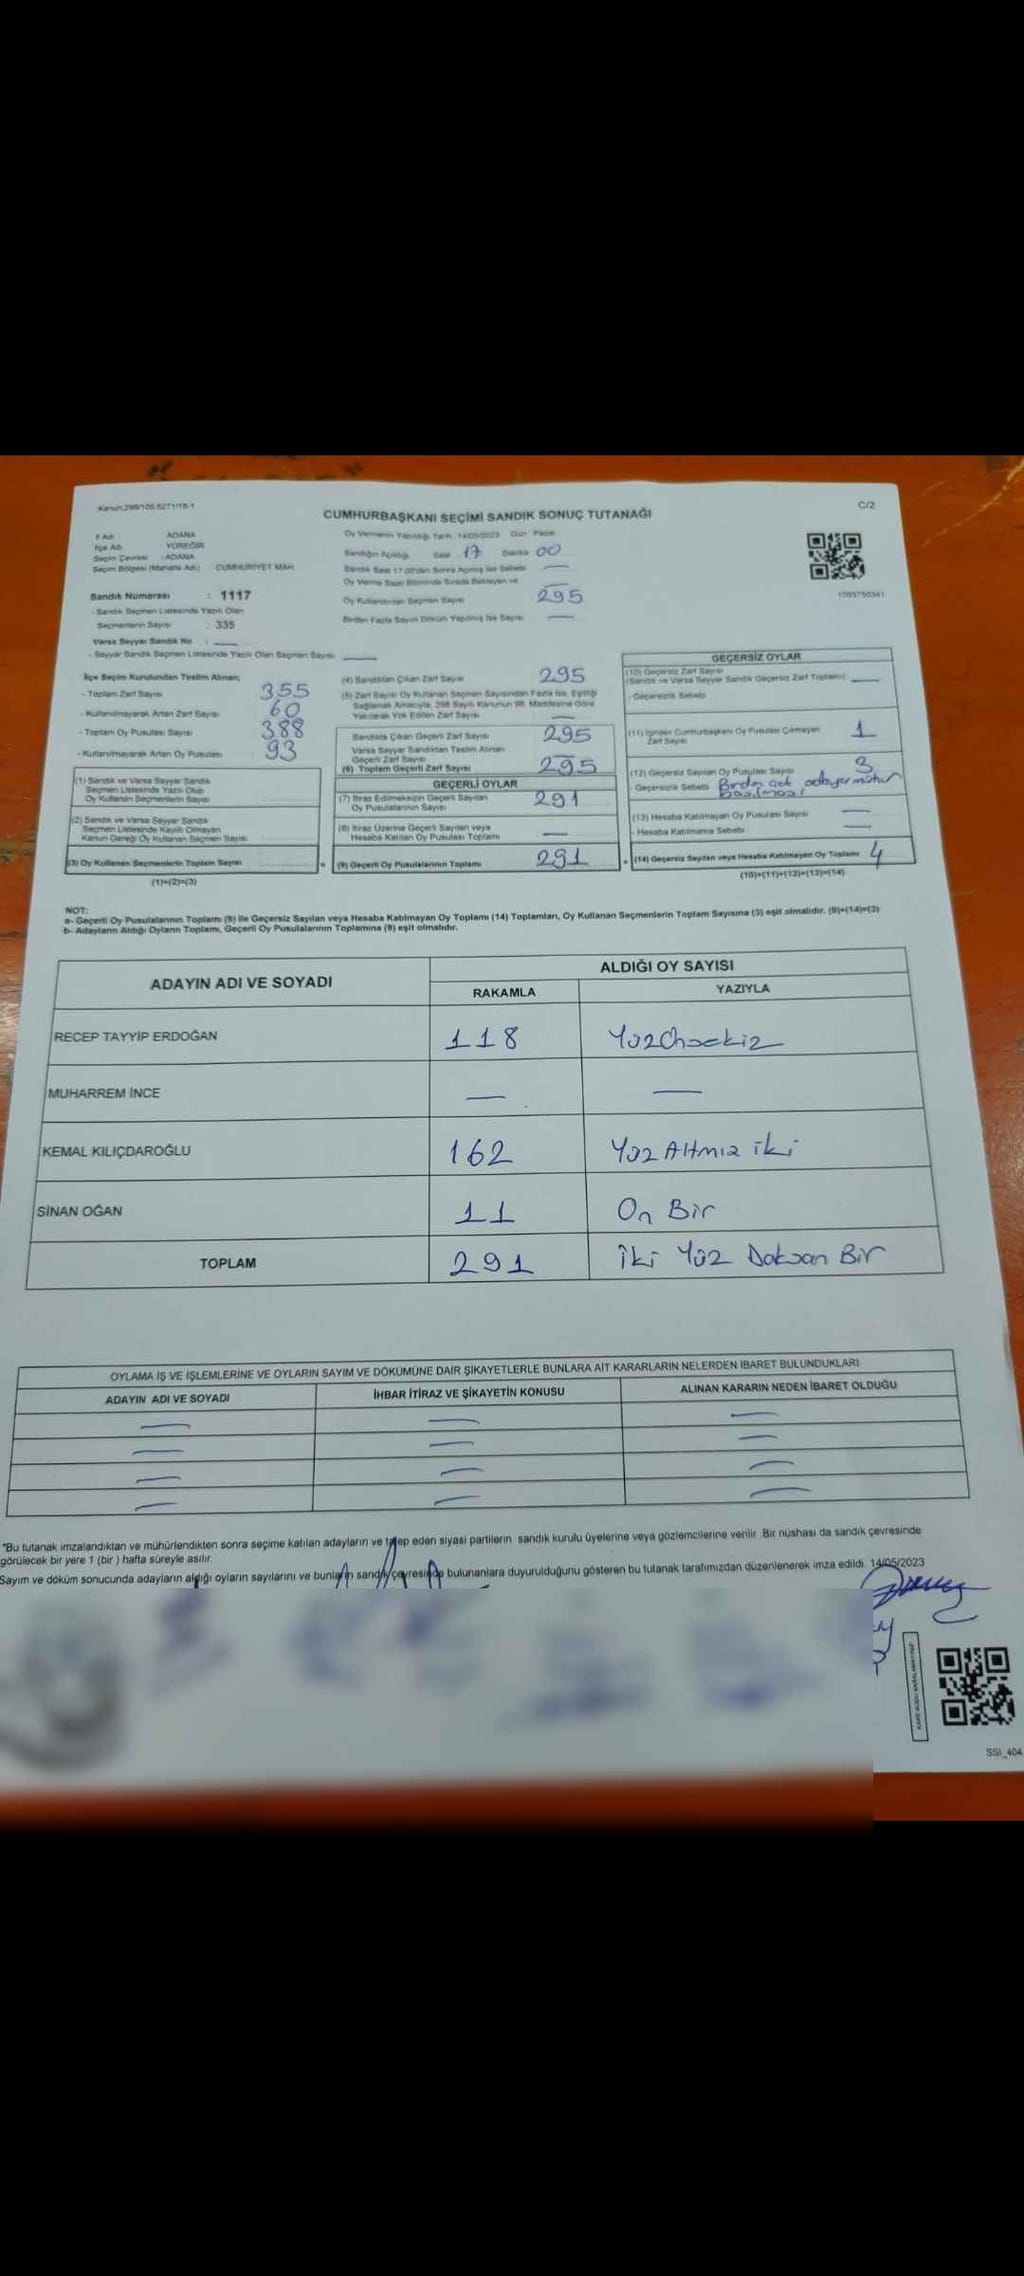 Kanun:298/105 6271/18-1
C/2
CUMHURBAŞKANI SEÇİMİ SANDIK SONUÇ TUTANAĞI
İl Adı ADANA
İlçe Adı YÜREĞİR
Seçim Çevresi : ADANA
Seçim Bölgesi (Mahalle Adı) CUMHURİYET MAH
Sandık Numarası : 1117
- Sandık Seçmen Listesinde Yazılı Olan
Seçmenlerin Sayısı : 335
Varsa Seyyar Sandık No :
- Seyyar Sandık Seçmen Listesinde Yazılı Olan Seçmen Sayısı
Oy Vermenin Yapıldığı Tarih 14/05/2023 Gün Pazar
Sandığın Açıldığı Saat 17 Dakika 00
Sandık Saat 17.00'den Sonra Açılmış İse Sebebi
Oy Verme Saati Bitiminde Sırada Bekleyen ve
Oy Kullandırılan Seçmen Sayısı
295
Birden Fazla Sayım Döküm Yapılmış İse Sayısı
İlçe Seçim Kurulundan Teslim Alınan;
- Toplam Zarf Sayısı 355
- Kullanılmayarak Artan Zarf Sayısı 60
- Toplam Oy Pusulası Sayısı 388
- Kullanılmayarak Artan Oy Pusulası 93
(1) Sandık ve Varsa Seyyar Sandık
Seçmen Listesinde Yazılı Olup
Oy Kullanan Seçmenlerin Sayısı
(2) Sandık ve Varsa Seyyar Sandık
Seçmen Listesinde Kayıtlı Olmayan
Kanun Gereği Oy Kullanan Seçmen Sayısı
(3) Oy Kullanan Seçmenlerin Toplam Sayısı =
(1)+(2)=(3)
(4) Sandıktan Çıkan Zarf Sayısı 295
(5) Zarf Sayısı Oy Kullanan Seçmen Sayısından Fazla İse, Eşitliği
Sağlamak Amacıyla, 298 Sayılı Kanunun 98. Maddesine Göre
Yakılarak Yok Edilen Zarf Sayısı
Sandıkta Çıkan Geçerli Zarf Sayısı 295
Varsa Seyyar Sandıktan Teslim Alınan
Geçerli Zarf Sayısı
(6) Toplam Geçerli Zarf Sayısı 295
GEÇERLİ OYLAR
(7) İtiraz Edilmeksizin Geçerli Sayılan
Oy Pusulalarının Sayısı 291
(8) İtiraz Üzerine Geçerli Sayılan veya
Hesaba Katılan Oy Pusulası Toplamı
(9) Geçerli Oy Pusulalarının Toplamı 291
GEÇERSİZ OYLAR
(10) Geçersiz Zarf Sayısı
(Sandık ve Varsa Seyyar Sandık Geçersiz Zarf Toplamı)
- Geçersizlik Sebebi
(11) İçinden Cumhurbaşkanı Oy Pusulası Çıkmayan
Zarf Sayısı 1
(12) Geçersiz Sayılan Oy Pusulası Sayısı 3
- Geçersizlik Sebebi Birden çok adaya mühür
Basılması
(13) Hesaba Katılmayan Oy Pusulası Sayısı
- Hesaba Katılmama Sebebi
(14) Geçersiz Sayılan veya Hesaba Katılmayan Oy Toplamı 4
(10)+(11)+(12)+(13)=(14)
NOT:
a- Geçerli Oy Pusulalarının Toplamı (9) ile Geçersiz Sayılan veya Hesaba Katılmayan Oy Toplamı (14) Toplamları, Oy Kullanan Seçmenlerin Toplam Sayısına (3) eşit olmalıdır. (9)+(14)=(3)
b- Adayların Aldığı Oyların Toplamı, Geçerli Oy Pusulalarının Toplamına (9) eşit olmalıdır.
ADAYIN ADI VE SOYADI
ALDIĞI OY SAYISI
RAKAMLA YAZIYLA
RECEP TAYYİP ERDOĞAN 118 YüzOnsekiz
MUHARREM İNCE
KEMAL KILIÇDAROĞLU 162 Yüz Altmız iki
SİNAN OĞAN 11 On Bir
TOPLAM 291 İki Yüz Doksan Bir
OYLAMA İŞ VE İŞLEMLERİNE VE OYLARIN SAYIM VE DÖKÜMÜNE DAİR ŞİKAYETLERLE BUNLARA AİT KARARLARIN NELERDEN İBARET BULUNDUKLARI
ADAYIN ADI VE SOYADI İHBAR İTİRAZ VE ŞİKAYETİN KONUSU ALINAN KARARIN NEDEN İBARET OLDUĞU
*Bu tutanak imzalandıktan ve mühürlendikten sonra seçime katılan adayların ve talep eden siyasi partilerin sandık kurulu üyelerine veya gözlemcilerine verilir. Bir nüshası da sandık çevresinde
görülecek bir yere 1 (bir) hafta süreyle asılır.
Sayım ve döküm sonucunda adayların aldığı oyların sayılarını ve bunların sandık çevresinde bulunanlara duyurulduğunu gösteren bu tutanak tarafımızdan düzenlenerek imza edildi. 14/05/2023
SSI_404